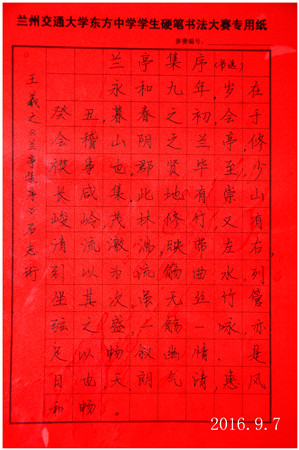 兰州交通大学东方中学学生硬笔书法大赛专用纸
参赛编号：
兰亭集序（节选）
永和九年，岁在
癸丑，暮春之初，会于
会稽山阴之兰亭，修
禊事也，群贤毕至，少
长咸集，此地有崇山
峻岭，茂林修竹，又有
清流激湍，映带左右，
引以为流觞曲水，列
坐其次，虽无丝竹管
弦之盛，一觞一咏，亦
足以畅叙幽情。是
日也，天朗气清，惠风
和畅。
王羲之《兰亭集序》
2016.9.7